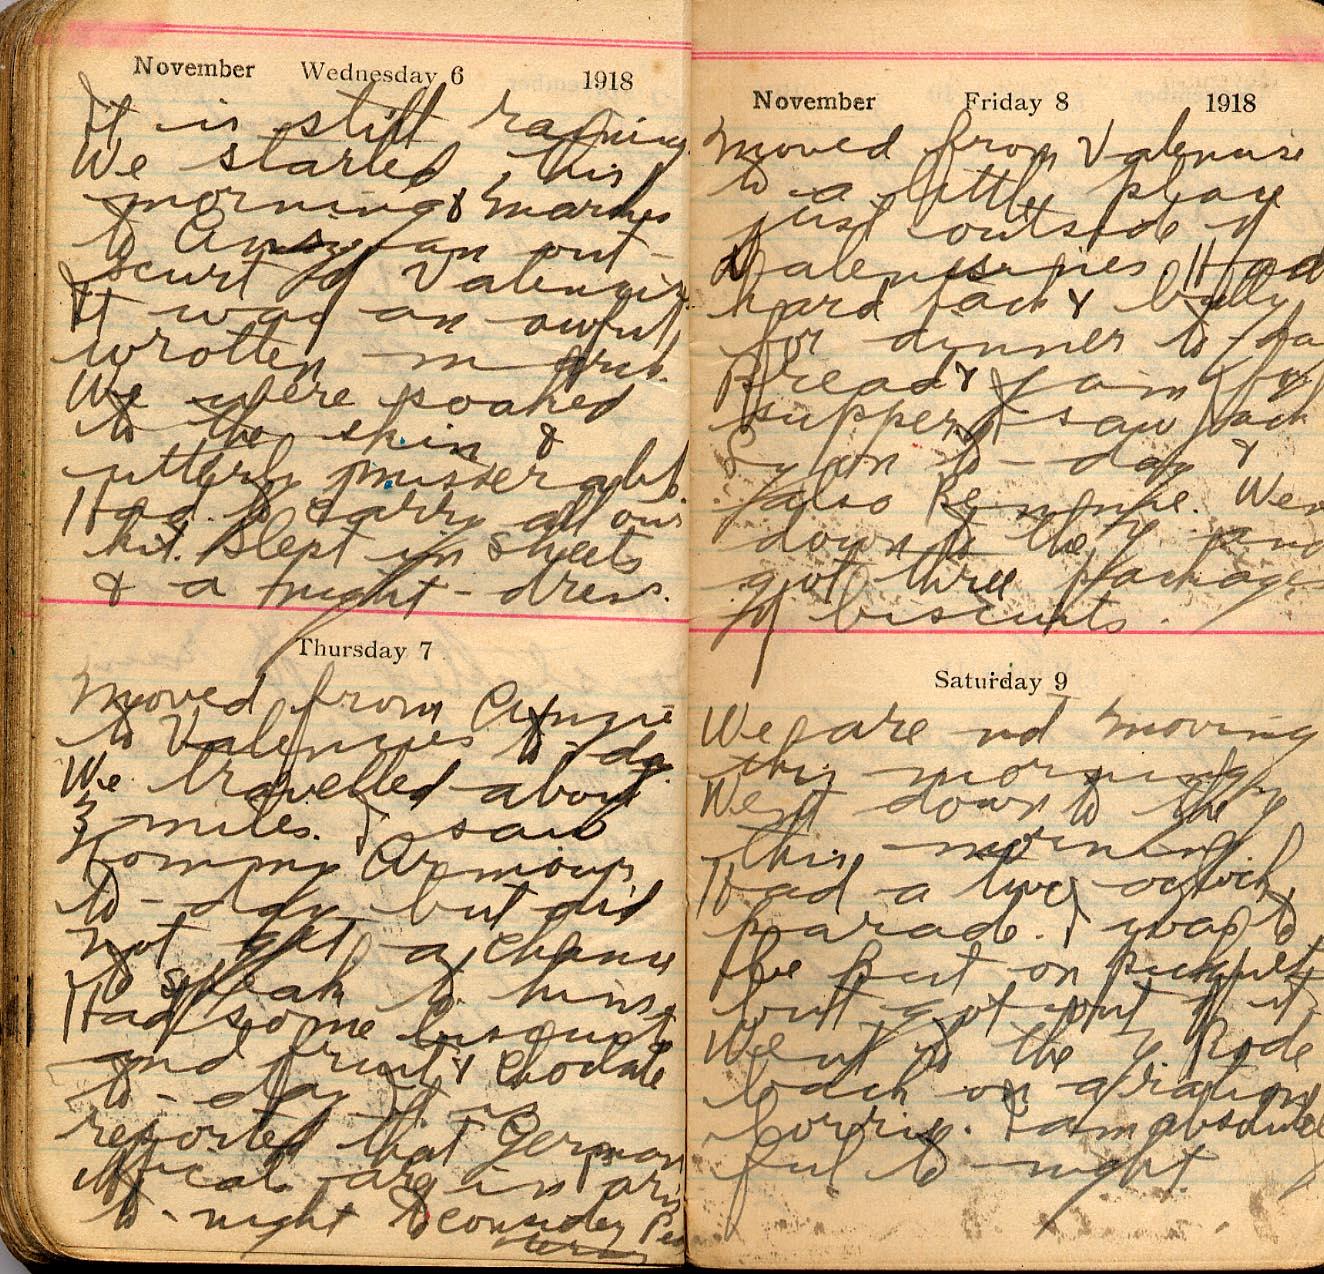 November Wednesday 6 1918
It is still raining
We started this
morning & marched
to Anzy an out-
scurt of Valencie
It was an awful
wrotten m
We where soaked
to the skin &
utterly misserable.
Had to carry all our
kit. Slept in sheets
& a night-dress.
Thursday 7
Moved from Anzie
to Valencies to-day
We travelled about
3 miles. I saw
Tommy Armour
to-day but did
not get a chance
to speak to him.
Had some bisquet
and fruit & Choclate
to-day It is
reported that German
offical are in
to-night to consider Pea
terms
November Friday 8 1918
Moved from Valencise
to a little place
just outside of
Valensinies. Had
hard tack & bully
for dinner to-da
Bread & Jam for
supper I saw Jack
to-day &
also We
down to the Y and
got three packages
of biscuits.
Saturday 9
We are not moving
this morning.
Went down to the Y
this morning.
Had a two oclock
parade. I was to
be put on picquet
but got out of it
Went to the Y. Rode
back on a ration
lorrie. I am absolute
ful to-night